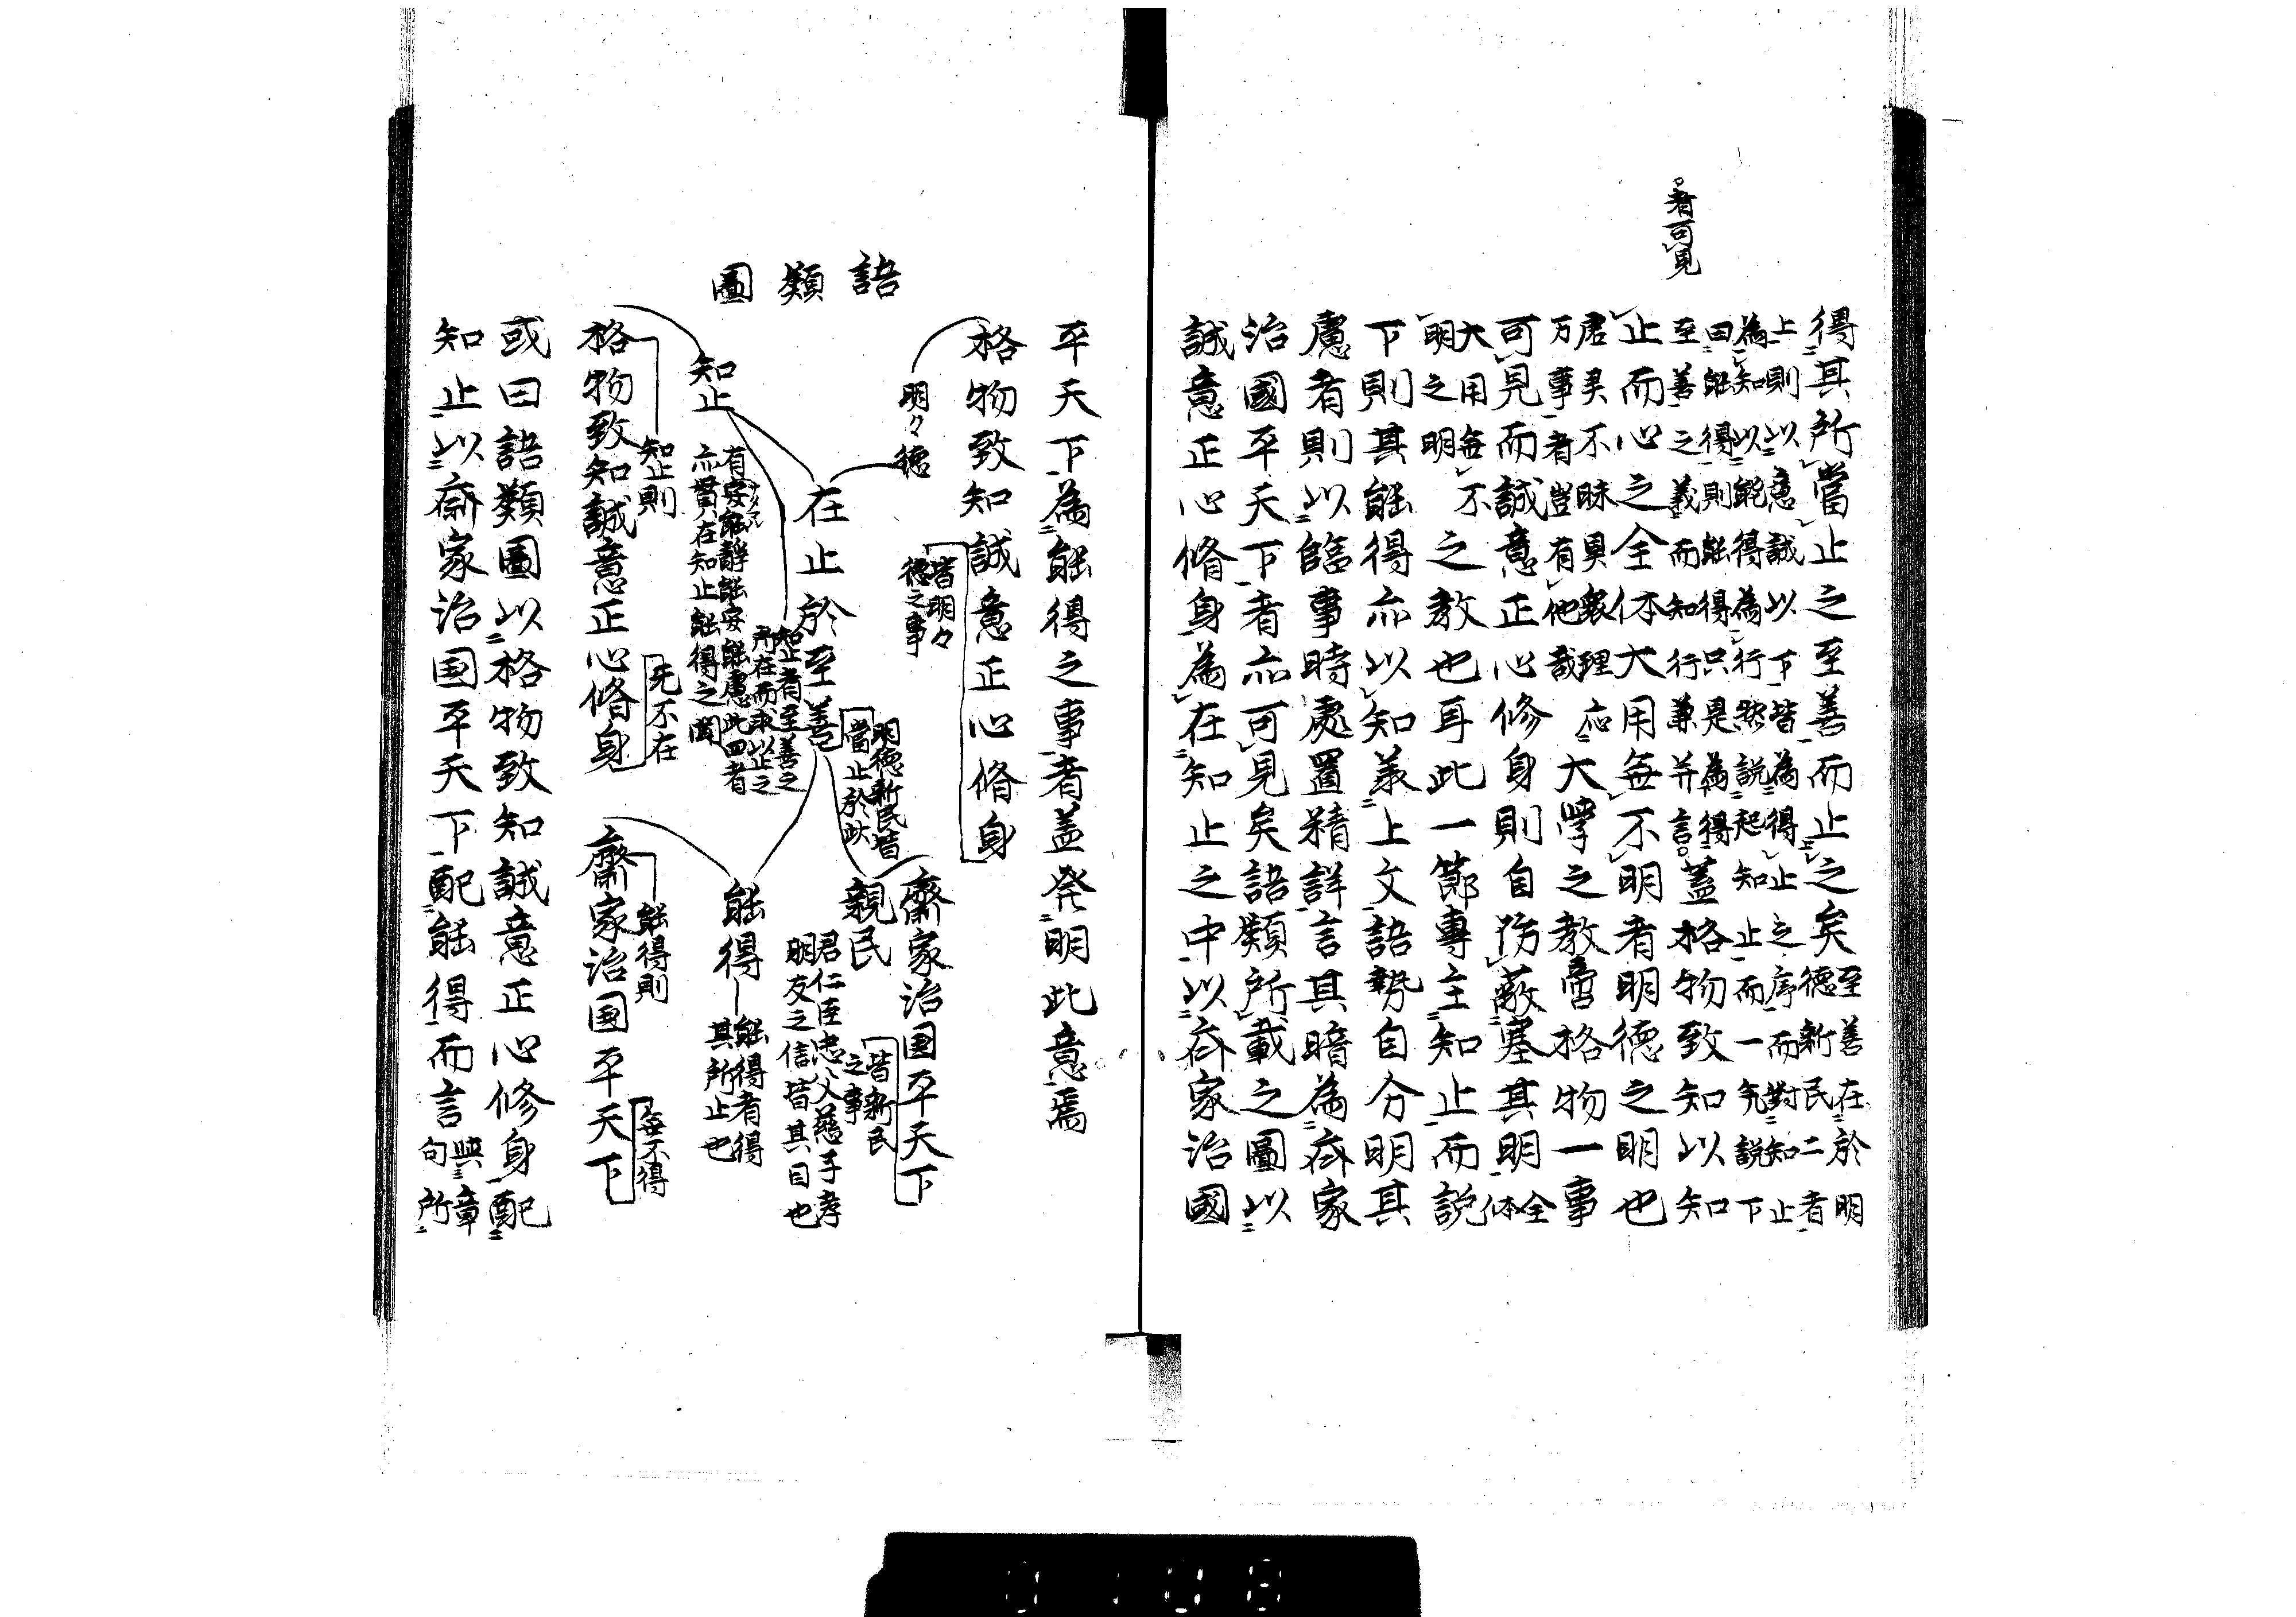 得其所當止之至善而止之矣 至善在於明
德新民二者
上則以意誠以下皆為得止之序而對知止
為知以能得為行然說起知止而一先說下
曰能得則能得只是為得
至善之義而知行兼并言。蓋格物致知以知
。者可見
止而心之全体大用每不明者明德之明也
君夫不昧具衆理應
万事者豈有他哉 大學之教啻格物一事
可見而誠意正心修身則自防蔽塞其明 全体
大用每不
明之明 之教也耳此一節專主知止而說
下則其能得亦以知義上文語勢自分明其
慮者則以臨事時處置精詳言其暗為齊家
治國平天下者亦可見矣語類所載之圖以
誠意正心脩身為在知止之中以齊家治國
平天下為能得之事者蓋発明此意焉
語類圖
格物致知誠意正心脩身
皆明々
德之事
明々德
在止於至善
明德新民皆
當止於此
知止者至善之
所在而求以止之
知止
有定能靜能安能慮此四者
亦貫在知止能得之間
齊家治国平天下
皆新民
之事
親民
君仁臣忠父慈子孝
朋友之信皆其目也
能得
能得者得
其所止也
知止則
格物致知誠意正心脩身
无不在
能得則
齊家治国平天下
每不得
或曰語類圖以格物致知誠意正心修身配
知止以齊家治国平天下配能得而言 與章
句所